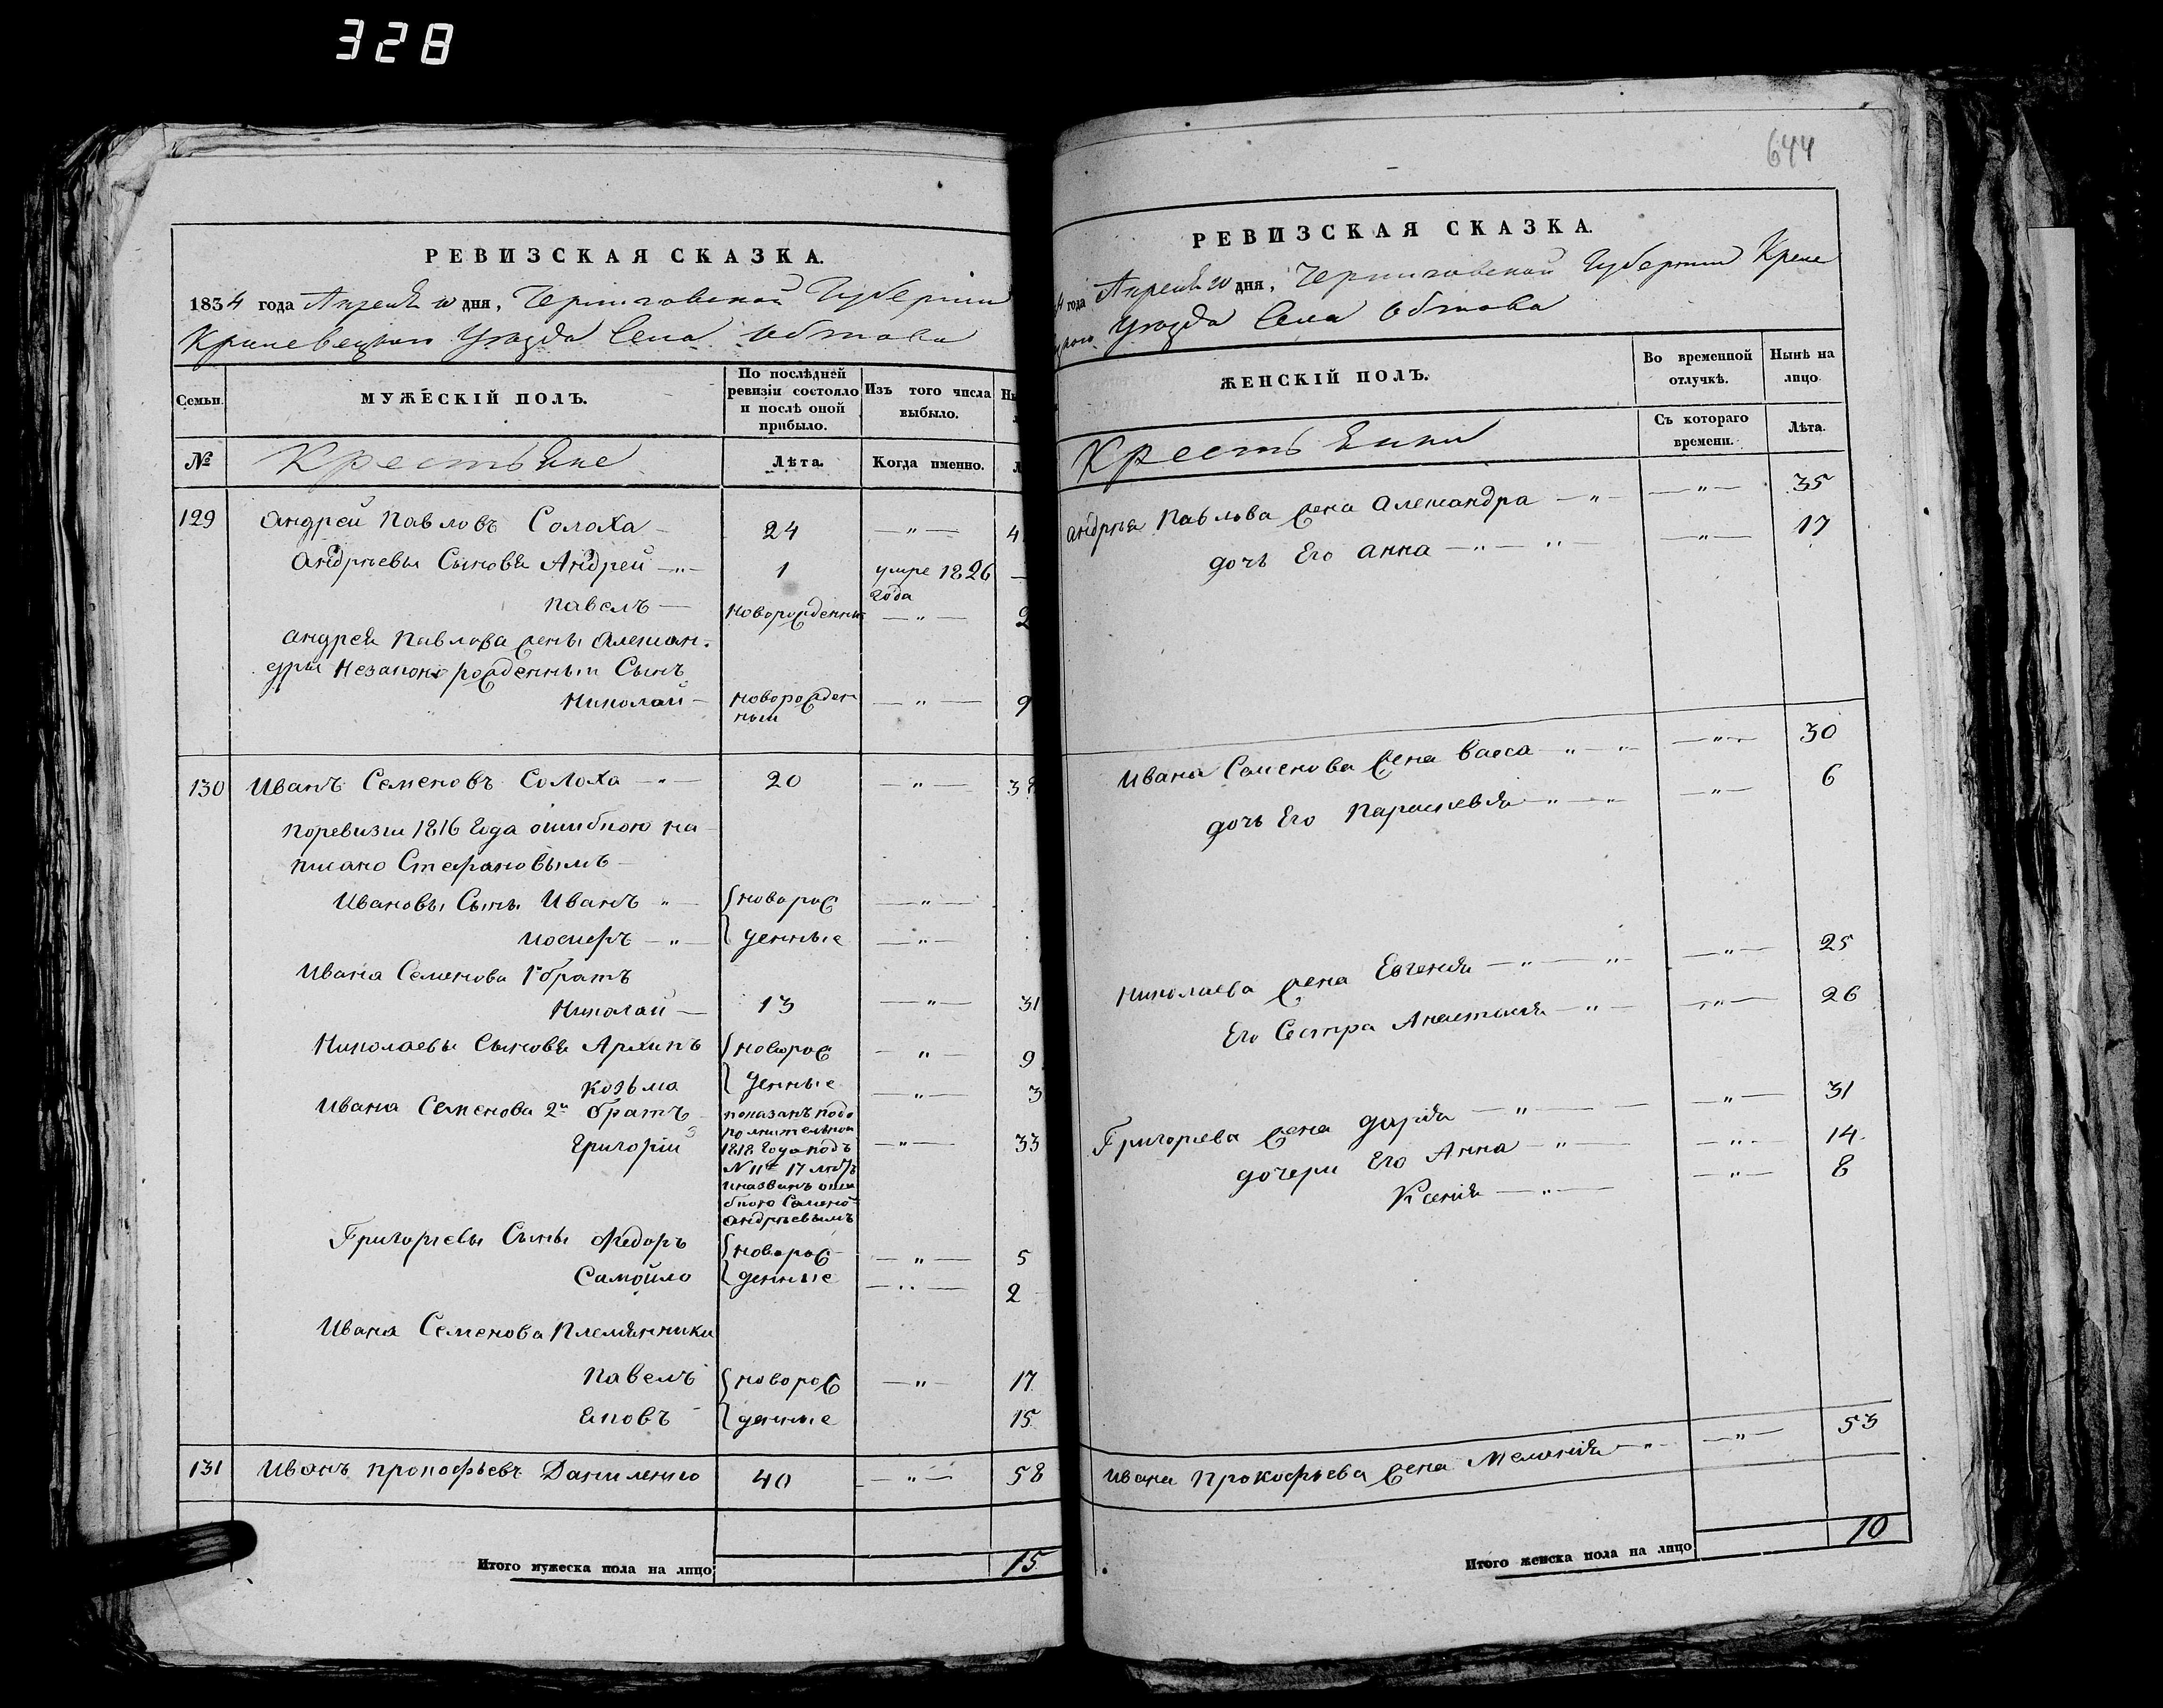 328
РЕВИЗСКАЯ СКАЗКА.
1834 года Апреля 10 дня, Черниговской Губернии
Кролевецкого Уѣзда Села Обтова
Семьи.
МУЖЕСКІЙ ПОЛЪ.
По послѣдней
ревизіи состояло
и послѣ оной
прибыло.
Изъ того числа
выбыло.
№
Крестьяне
Лѣта.
Когда именно.
129 Андрей Павловъ Солоха 24 —„—
Андрѣевы Сыновья Андрей —„— 1 умре 1826
года
Павелъ — Новорожденный —„—
Андрея Павлова жены Алексан-
дры Незаконо рожденный Сынъ
Николай — новорожден —„— 9
ный
130 Иванъ Семеновъ Солоха —„— 20 —„—
поревизіи 1816 Года ошибкою на
писано Стефановымъ —
Ивановы Сыны Иванъ „ — новорож —„—
Иосифъ —„— денные —„—
Ивана Семенова 1й братъ
Николай — 13 —„— 31
Николаевы Сыновья Архипъ новорож —„— 9
Козьма денные —„— 3
Ивана Семенова 2й братъ показанъ подо
Григорій полнительной —„— 33
1818 Года подъ
иназванъ оши
бкою Семено
Андрѣевымъ
Григорьевы Сыны Федоръ новорож —„— 5
Самойло денные —„— 2
Ивана Семенова Племянники
Павелъ новорож —„— 17
Яковъ денные 15
131 Иванъ Прокофьевъ Даниленко 40 —„— 58
Итого мужеска пола на лицо 15
644
РЕВИЗСКАЯ СКАЗКА.
4 года Апреля 10 дня, Черниговской Губернии Кроле
Уѣзда Села Обтова
ЖЕНСКІЙ ПОЛЪ.
Во временной
отлучкѣ.
Нынѣ на
лицо.
Съ котораго
времени.
Лѣта.
Крестьянки
Андрѣя Павлова жена Александра —„— —„— 35
дочь Его Анна —„— „— —„— 17
Ивана Семенова жена Васса —„—„— —„— 30
дочь Его Параскевия —„—„— —„— 6
Николаева жена Евгения —„—„— —„— 25
Его Сестра Анастасия —„— —„— 26
Григорьева жена Дарья —„— —„— 31
дочери Его Анна —„— —„— 14
Ксения —„— —„— 8
Ивана Прокофьева жена Мелания —„— —„— 53
Итого женска пола на лицо 10